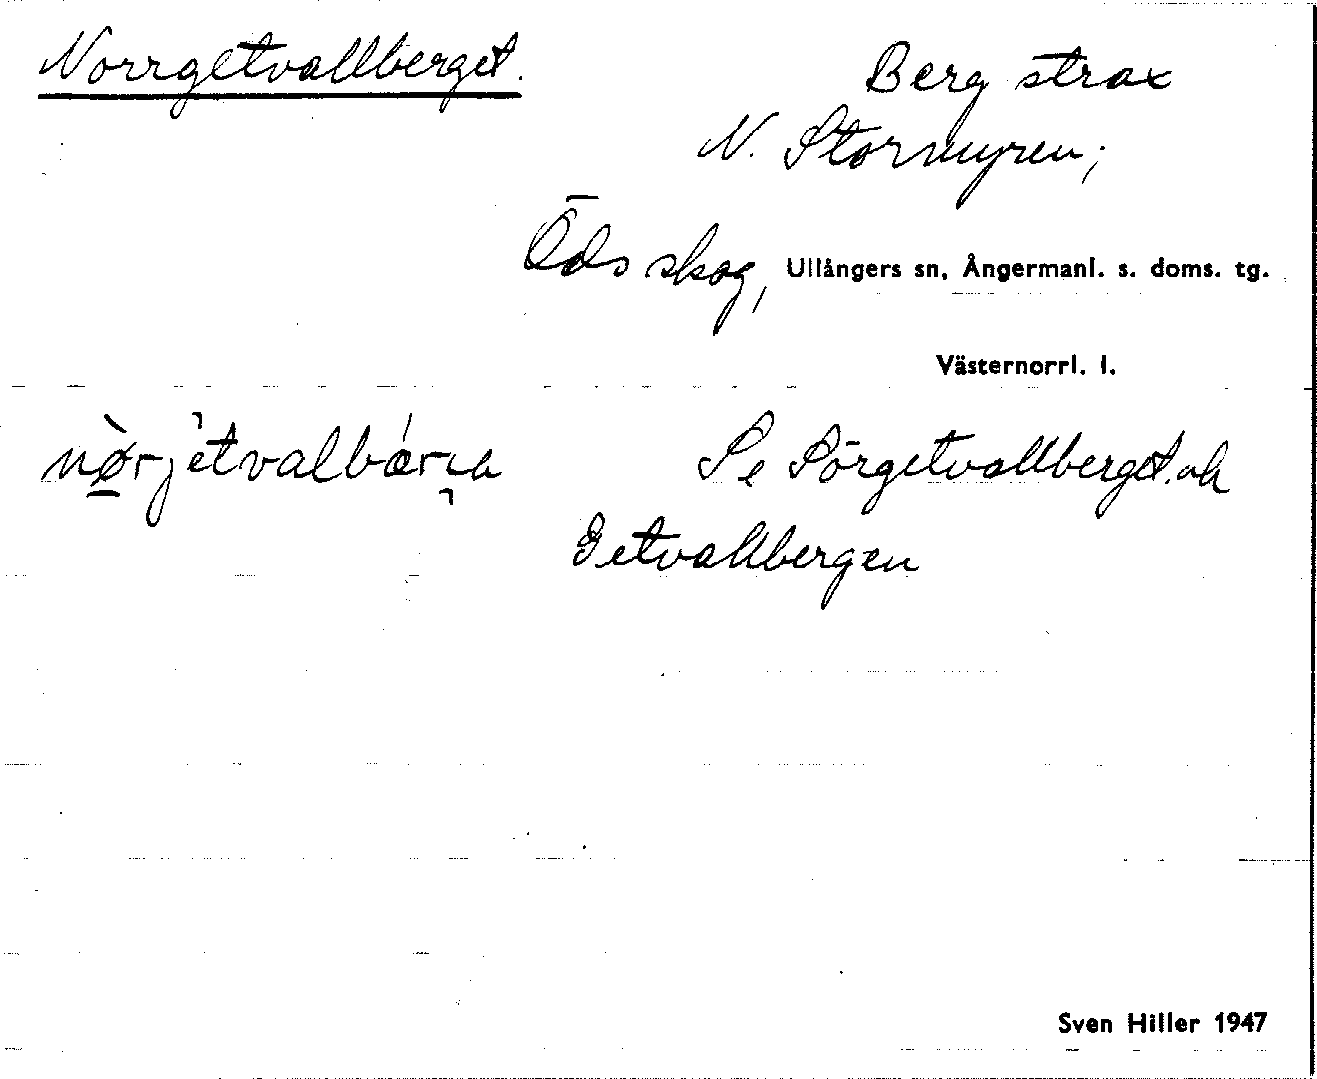 Norrgetvallberget.
Berg strax
N. Stormyren;
Öds skog, Ullångers sn, Ångermanl. s. doms. tg.
Västernorrl. l.
Se Sörgetvallberget. ok
Getvallbergen
Sven Hiller 1947